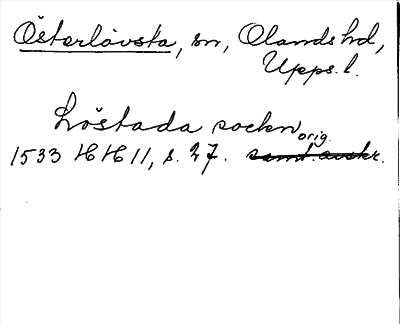 Österlövsta, sn, Olands hd,
Upps. l.
Löstada sockn
1533 HH 11, s. 27. orig. samt. avskr.